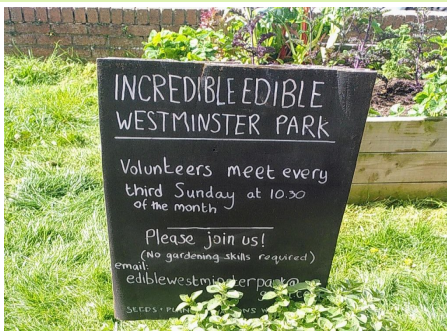 INCREDIBLE EDIBLE
WESTMINSTER PARK
Volunteers meet every
third Sunday at 10.30
of the month
Please join us!
(No gardening skills required)
email:
ediblewestminsterpark@
SEEDS •